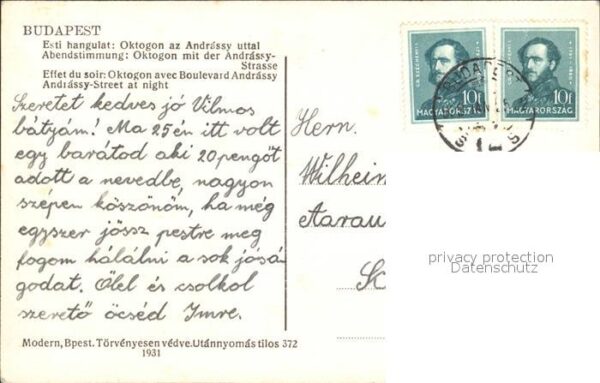 BUDAPEST
Esti hangulat: Oktogon az Andrássy uttal
Abendstimmung: Oktogon mit der Andrássy-
Strasse
Effet du soir: Oktogon avec Boulevard Andrássy
Andrássy-Street at night
Szeretet kedves jó Vilmos
bátyám! Ma 25én itt volt
egy barátod aki 20 pengőt
adott a nevedbe, nagyon
szépen köszönöm, ha még
egyszer jössz pestre meg
fogom hálálni a sok jósá
godat. Ölel és csolkol
szerető öcséd Imre.
Modern, Bpest. Törvényesen védve. Utánnyomás tilos 372
1931
GR. SZÉCHENYI I.
10f
MAGYARORSZÁG
10f
MAGYARORSZÁG
BUDAPEST
Herrn.
Wilheim
Aarau
privacy protection
Datenschutz